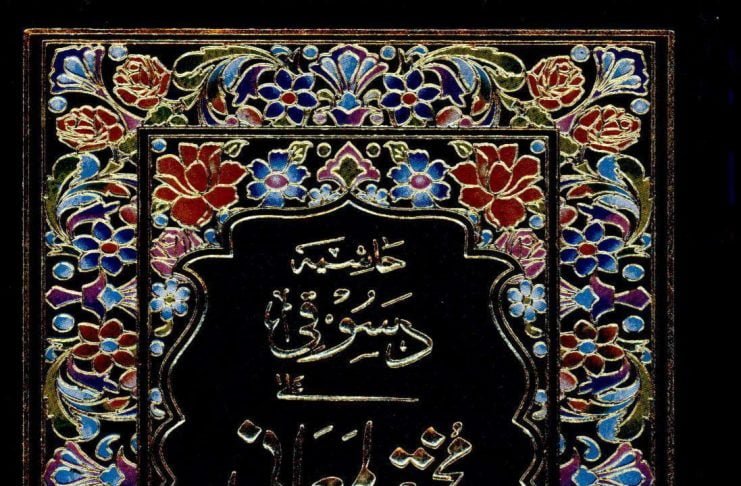 حاشیہ
دسُوْقی
علیٰ